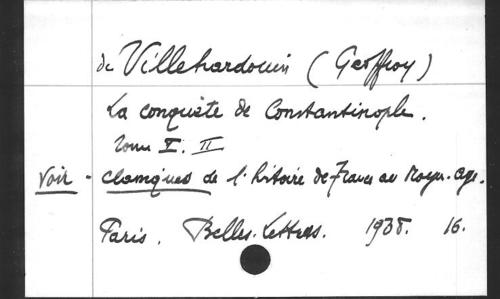 de Villehardouin (Geoffroy)
La conquête de Constantinople.
Tome I. II
Voir - classiques de l'histoire de France au Moyen-age.
Paris. Belles-Lettres. 1938. 16.